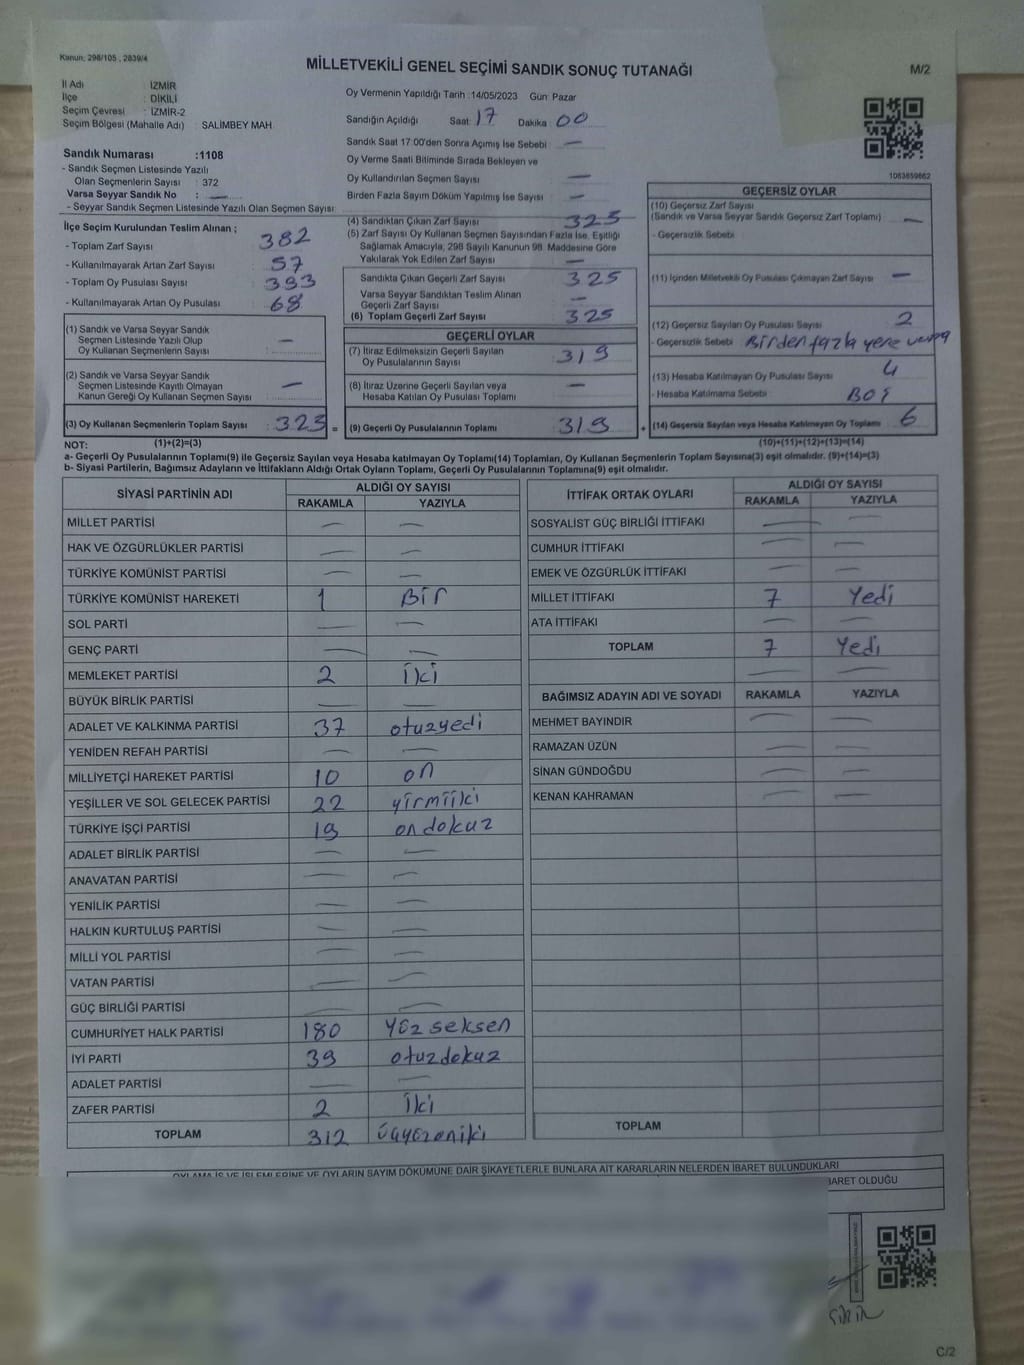 Kanun: 298/105 , 2839/4
MİLLETVEKİLİ GENEL SEÇİMİ SANDIK SONUÇ TUTANAĞI
M/2
İl Adı : İZMİR
İlçe : DİKİLİ
Seçim Çevresi : İZMİR-2
Seçim Bölgesi (Mahalle Adı) : SALİMBEY MAH.
Sandık Numarası :1108
- Sandık Seçmen Listesinde Yazılı
Olan Seçmenlerin Sayısı : 372
Varsa Seyyar Sandık No : —
- Seyyar Sandık Seçmen Listesinde Yazılı Olan Seçmen Sayısı:
İlçe Seçim Kurulundan Teslim Alınan ;
- Toplam Zarf Sayısı : 382
- Kullanılmayarak Artan Zarf Sayısı : 57
- Toplam Oy Pusulası Sayısı : 393
- Kullanılmayarak Artan Oy Pusulası : 68
(1) Sandık ve Varsa Seyyar Sandık
Seçmen Listesinde Yazılı Olup
Oy Kullanan Seçmenlerin Sayısı : —
(2) Sandık ve Varsa Seyyar Sandık
Seçmen Listesinde Kayıtlı Olmayan
Kanun Gereği Oy Kullanan Seçmen Sayısı : —
(3) Oy Kullanan Seçmenlerin Toplam Sayısı : 325 =
Oy Vermenin Yapıldığı Tarih :14/05/2023 Gün: Pazar
Sandığın Açıldığı Saat: 17 Dakika : 00
Sandık Saat 17:00'den Sonra Açımış İse Sebebi —
Oy Verme Saati Bitiminde Sırada Bekleyen ve
Oy Kullandırılan Seçmen Sayısı —
Birden Fazla Sayım Döküm Yapılmış İse Sayısı —
(4) Sandıktan Çıkan Zarf Sayısı : 325
(5) Zarf Sayısı Oy Kullanan Seçmen Sayısından Fazla İse, Eşitliği
Sağlamak Amacıyla, 298 Sayılı Kanunun 98. Maddesine Göre
Yakılarak Yok Edilen Zarf Sayısı : —
Sandıkta Çıkan Geçerli Zarf Sayısı : 325
Varsa Seyyar Sandıktan Teslim Alınan
Geçerli Zarf Sayısı : —
(6) Toplam Geçerli Zarf Sayısı : 325
GEÇERLİ OYLAR
(7) İtiraz Edilmeksizin Geçerli Sayılan
Oy Pusulalarının Sayısı : 319
(8) İtiraz Üzerine Geçerli Sayılan veya
Hesaba Katılan Oy Pusulası Toplamı : —
(9) Geçerli Oy Pusulalarının Toplamı : 319 +
1083859862
GEÇERSİZ OYLAR
(10) Geçersiz Zarf Sayısı
(Sandık ve Varsa Seyyar Sandık Geçersiz Zarf Toplamı) : —
- Geçersizlik Sebebi :
(11) İçinden Milletvekili Oy Pusulası Çıkmayan Zarf Sayısı : —
(12) Geçersiz Sayılan Oy Pusulası Sayısı : 2
- Geçersizlik Sebebi : Birden fazla yere
(13) Hesaba Katılmayan Oy Pusulası Sayısı : 4
- Hesaba Katılmama Sebebi : BOŞ
(14) Geçersiz Sayılan veya Hesaba Katılmayan Oy Toplamı : 6
NOT: (1)+(2)=(3) (10)+(11)+(12)+(13)=(14)
a- Geçerli Oy Pusulalarının Toplamı(9) ile Geçersiz Sayılan veya Hesaba katılmayan Oy Toplamı(14) Toplamları, Oy Kullanan Seçmenlerin Toplam Sayısına(3) eşit olmalıdır. (9)+(14)=(3)
b- Siyasi Partilerin, Bağımsız Adayların ve İttifakların Aldığı Ortak Oyların Toplamı, Geçerli Oy Pusulalarının Toplamına(9) eşit olmalıdır.
SİYASİ PARTİNİN ADI ALDIĞI OY SAYISI
RAKAMLA YAZIYLA
MİLLET PARTİSİ — —
HAK VE ÖZGÜRLÜKLER PARTİSİ — —
TÜRKİYE KOMÜNİST PARTİSİ — —
TÜRKİYE KOMÜNİST HAREKETİ 1 Bir
SOL PARTİ — —
GENÇ PARTİ — —
MEMLEKET PARTİSİ 2 iki
BÜYÜK BİRLİK PARTİSİ — —
ADALET VE KALKINMA PARTİSİ 37 otuzyedi
YENİDEN REFAH PARTİSİ — —
MİLLİYETÇİ HAREKET PARTİSİ 10 on
YEŞİLLER VE SOL GELECEK PARTİSİ 22 yirmiiki
TÜRKİYE İŞÇİ PARTİSİ 19 ondokuz
ADALET BİRLİK PARTİSİ — —
ANAVATAN PARTİSİ — —
YENİLİK PARTİSİ — —
HALKIN KURTULUŞ PARTİSİ — —
MİLLİ YOL PARTİSİ — —
VATAN PARTİSİ — —
GÜÇ BİRLİĞİ PARTİSİ — —
CUMHURİYET HALK PARTİSİ 180 Yüz seksen
İYİ PARTİ 39 otuzdokuz
ADALET PARTİSİ — —
ZAFER PARTİSİ 2 iki
TOPLAM 312 üçyüzoniki
İTTİFAK ORTAK OYLARI ALDIĞI OY SAYISI
RAKAMLA YAZIYLA
SOSYALİST GÜÇ BİRLİĞİ İTTİFAKI — —
CUMHUR İTTİFAKI — —
EMEK VE ÖZGÜRLÜK İTTİFAKI — —
MİLLET İTTİFAKI 7 Yedi
ATA İTTİFAKI — —
TOPLAM 7 Yedi
— —
BAĞIMSIZ ADAYIN ADI VE SOYADI RAKAMLA YAZIYLA
MEHMET BAYINDIR — —
RAMAZAN ÜZÜN — —
SİNAN GÜNDOĞDU — —
KENAN KAHRAMAN — —
TOPLAM
OYLAMA İŞ VE İŞLEMLERİNE VE OYLARIN SAYIM DÖKÜMÜNE DAİR ŞİKAYETLERLE BUNLARA AİT KARARLARIN NELERDEN İBARET BULUNDUKLARI
BARET OLDUĞU
C/2